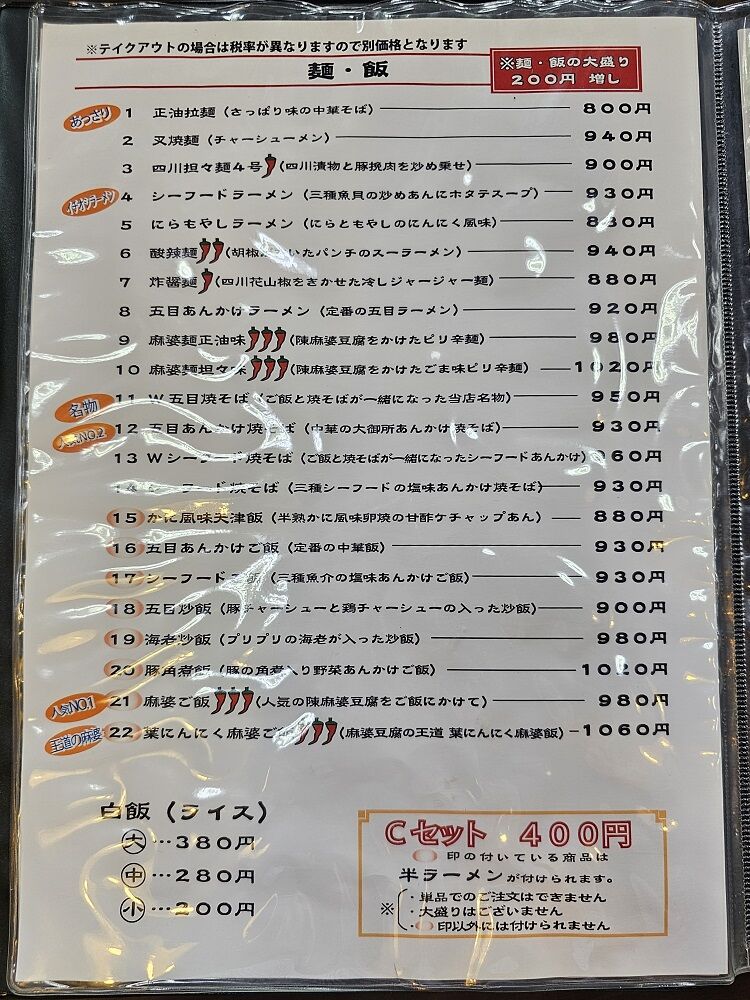 ※テイクアウトの場合は税率が異なりますので別価格となります
麺・飯
※麺・飯の大盛り
200円 増し
あっさり 1 正油拉麺(さっぱり味の中華そば) 800円
2 叉焼麺(チャーシューメン) 940円
3 四川担々麺4号(四川漬物と豚挽肉を炒め乗せ) 900円
イチオシラーメン 4 シーフードラーメン(三種魚貝の炒めあんにホタテスープ) 930円
5 にらもやしラーメン(にらともやしのにんにく風味) 880円
6 酸辣麺(胡椒 いたパンチのスーラーメン) 940円
7 炸醤麺(四川花山椒をきかせた冷しジャージャー麺) 880円
8 五目あんかけラーメン(定番の五目ラーメン) 920円
9 麻婆麺正油味(陳麻婆豆腐をかけたピリ辛麺) 980円
10 麻婆麺坦々味(陳麻婆豆腐をかけたごま味ピリ辛麺) 1020円
名物 11 W五目焼そば(ご飯と焼そばが一緒になった当店名物) 950円
人気NO.2 12 五目あんかけ焼そば(中華の大御所あんかけ焼そば) 930円
13 Wシーフード焼そば(ご飯と焼そばが一緒になったシーフードあんかけ) 960円
14 シーフード焼そば(三種シーフードの塩味あんかけ焼そば) 930円
15 かに風味天津飯(半熟かに風味卵焼の甘酢ケチャップあん) 880円
16 五目あんかけご飯(定番の中華飯) 930円
17 シーフードご飯(三種魚介の塩味あんかけご飯) 930円
18 五目炒飯(豚チャーシューと鶏チャーシューの入った炒飯) 900円
19 海老炒飯(プリプリの海老が入った炒飯) 980円
20 豚角煮飯(豚の角煮入り野菜あんかけご飯) 1020円
人気NO.1 21 麻婆ご飯(人気の陳麻婆豆腐をご飯にかけて) 980円
王道の麻婆 22 葉にんにく麻婆ご飯(麻婆豆腐の王道 葉にんにく麻婆飯) 1060円
白飯(ライス)
大…380円
中…280円
小…200円
Cセット 400円
印の付いている商品は
半ラーメンが付けられます。
※ ・単品でのご注文はできません
・大盛りはございません
・ 印以外には付けられません